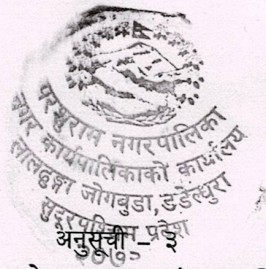 परशुराम नगरपालिका
नगर कार्यपालिकाको कार्यालय
लालढुङ्गा जोगबुडा, डडेल्धुरा
सुदूरपश्चिम प्रदेश
२०७०
अनुसूची – ३